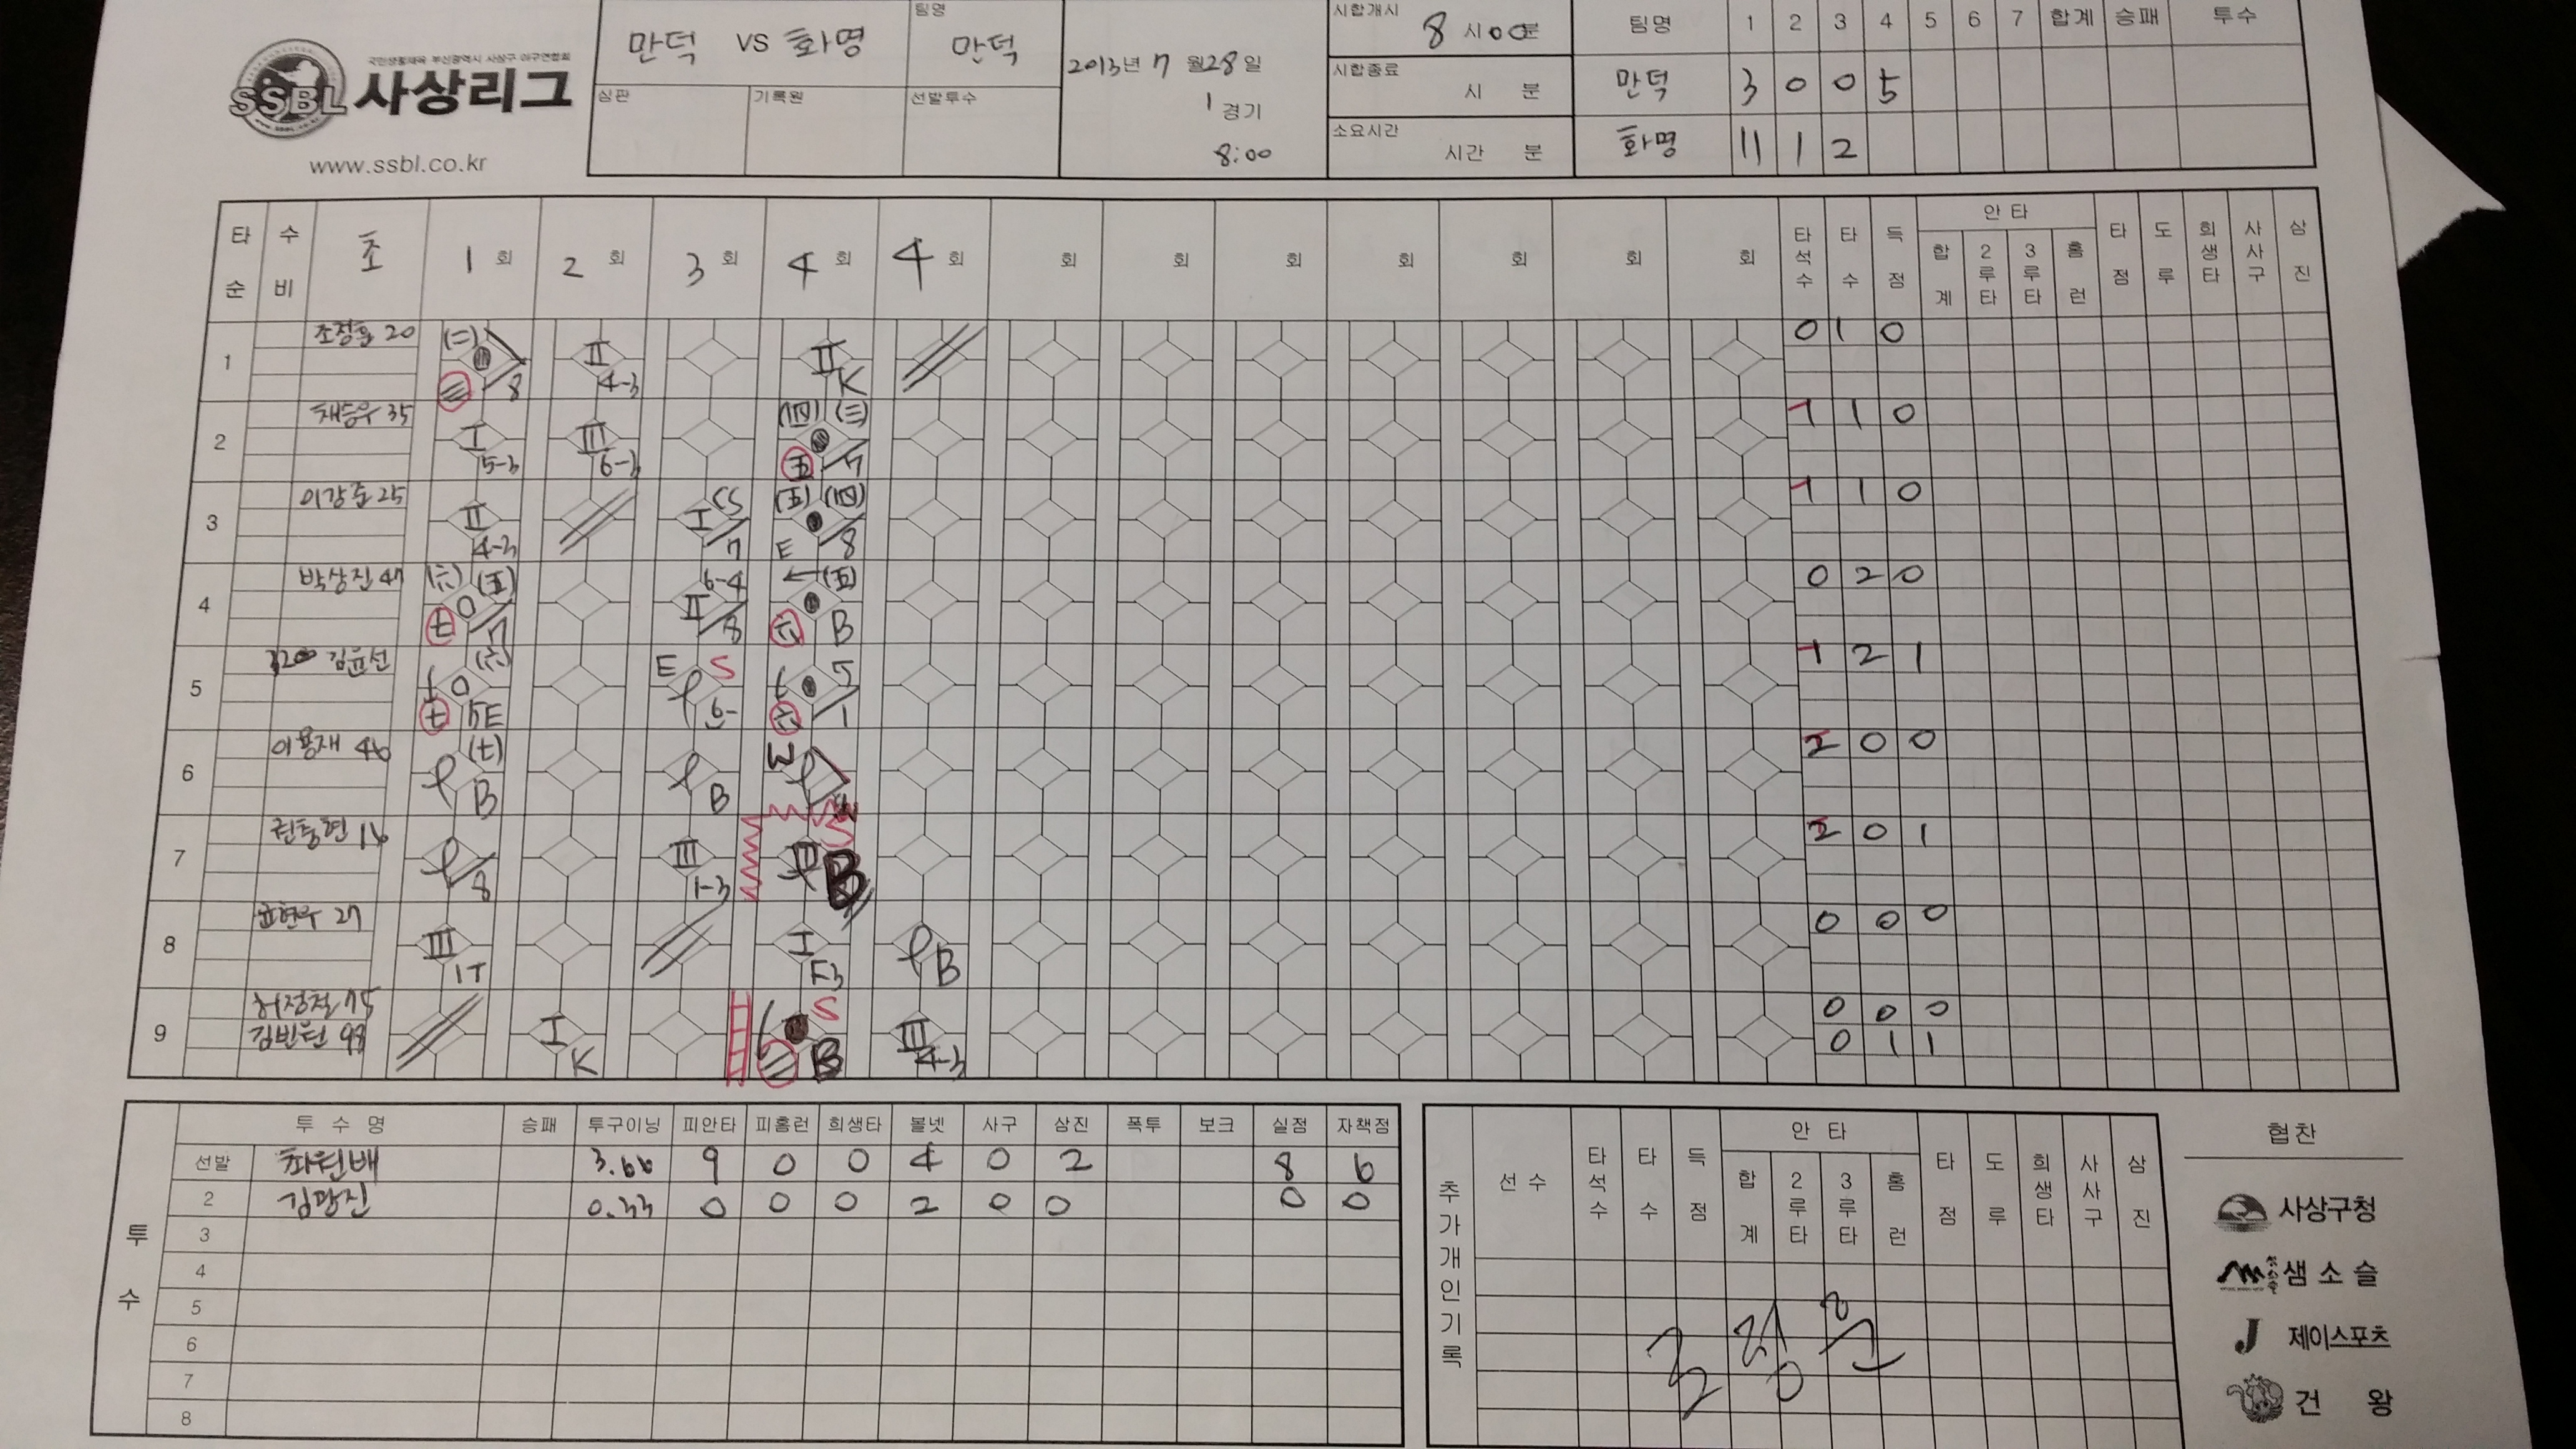 만덕 VS 화명
팀명
만덕
2013년 7월 28일
1 경기
8:00
심판
기록원
선발투수
시합개시
8 시 00 분
시합종료
시 분
소요시간
시간 분
팀명 1 2 3 4 5 6 7 합계 승패 투수
만덕 3 0 0 5
화명 11 1 2
국민생활체육 부산광역시 사상구 야구연합회
SSBL 사상리그
www.ssbl.co.kr
타순 수비 초 1회 2회 3회 4회 4회 회 회 회 회 회 회 회 타석수 타수 득점 안타 합계 2루타 3루타 홈런 타점 도루 희생타 사사구 삼진
1 조정훈 20 (二) 8 II 4-3 II K 0 1 0
2 채승우 35 I 5-3 III 6-3 (四) (三) 五 7 1 1 0
3 이강준 25 II 4-3 I CS 7 (五) (四) E 8 1 1 0
4 박상진 47 (六) (五) 七 7 6-4 II 8 (五) 六 B 0 2 0
5 김윤선 (六) 七 5E E S 6- 5 六 1 1 2 1
6 이용재 46 (七) B B 2 0 0
7 권동현 16 8 III 1-3 B 2 0 1
8 윤현우 27 III 1T I F3 B 0 0 0
9 허정철 75 0 0 0
김빈원 98 I K S 三 B III 4-3 0 1 1
투수
투수명 승패 투구이닝 피안타 피홈런 희생타 볼넷 사구 삼진 폭투 보크 실점 자책점
선발 최원배 3.66 9 0 0 4 0 2 8 6
2 김광진 0.33 0 0 0 2 0 0 0 0
3
4
5
6
7
8
추가개인기록
선수 타석수 타수 득점 안타 합계 2루타 3루타 홈런 타점 도루 희생타 사사구 삼진
협찬
사상구청
샘소슬
제이스포츠
건왕